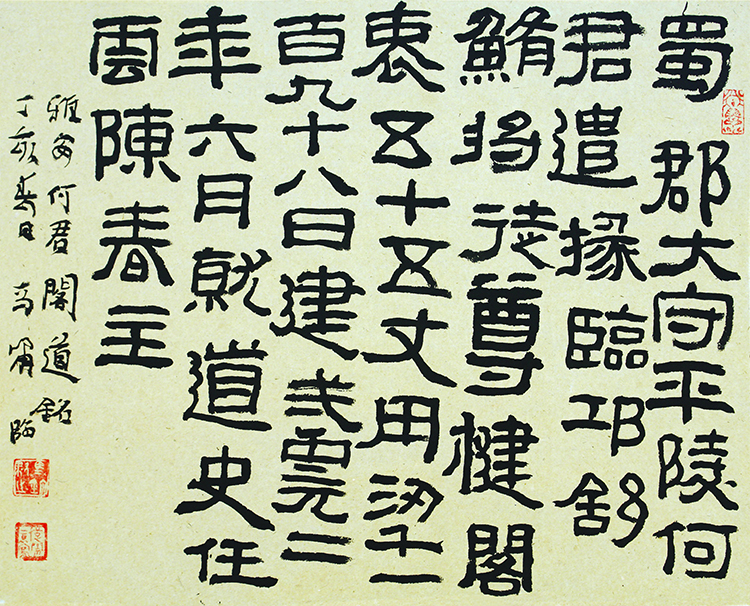 蜀郡大守平陵何
君遣掾臨邛舒
鮪將徒尊楗閣
袤五十五丈用功千一
百九十八日建武中元二
年六月就道史任
雲陳春主
雅安何君閣道銘
丁亥春日 臨